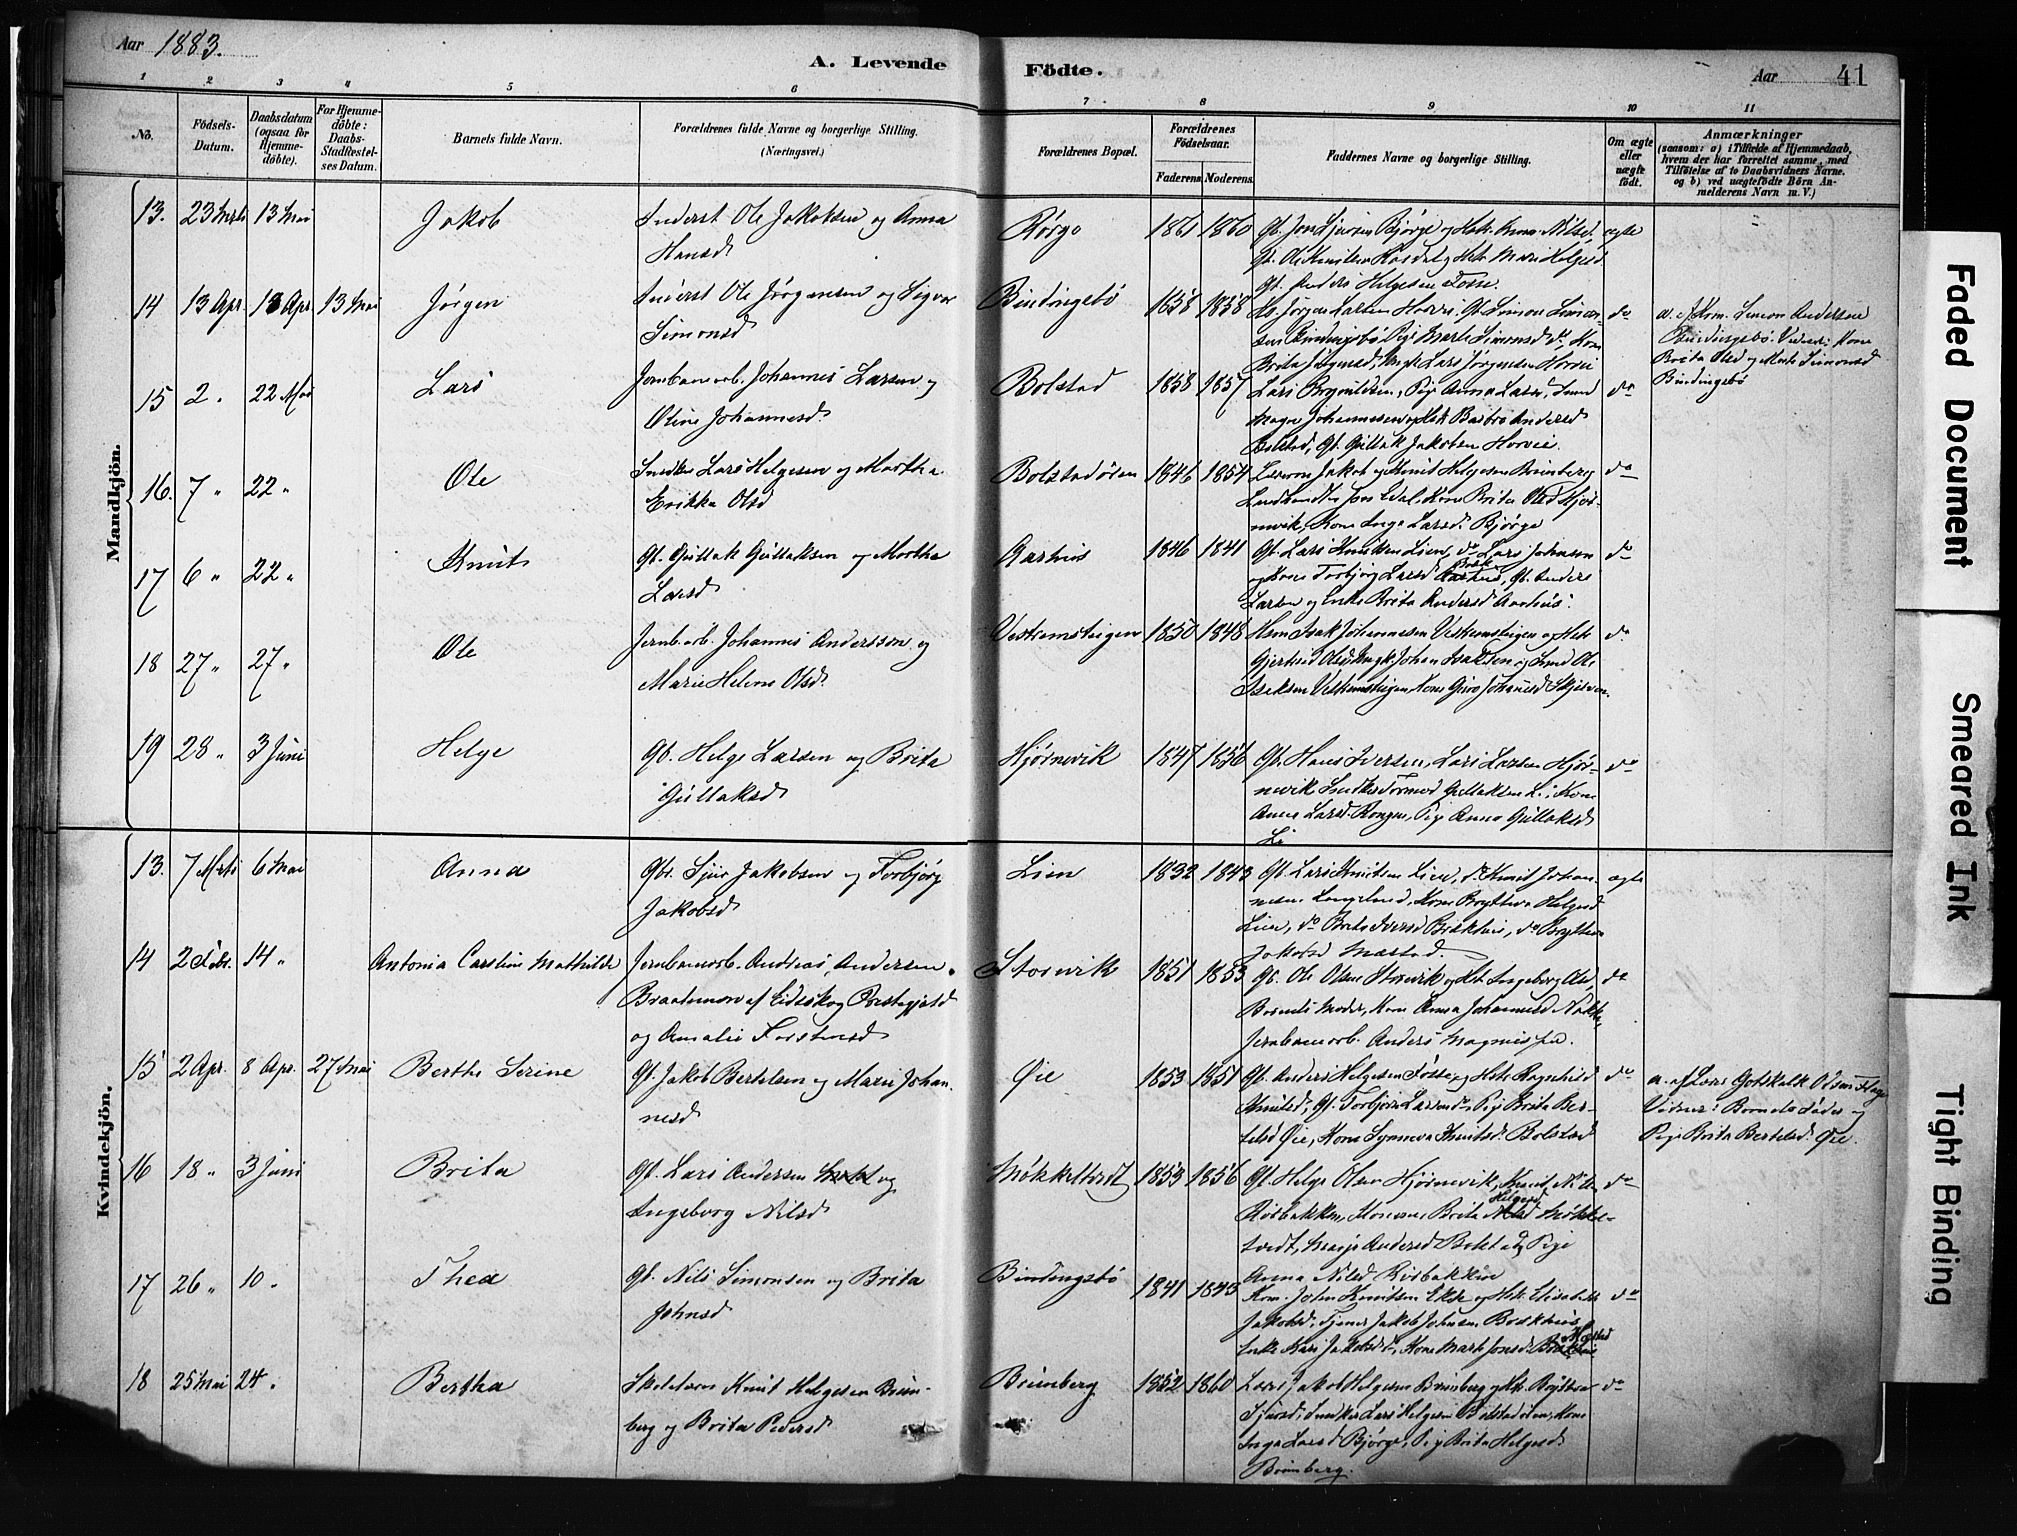 Aar 1883.
A. Levende
Födte.
Aar
41
1 2 3 4 5 6
7 8 9 10 11
No.
Födsels-Datum.
Daabsdatum (ogsaa for Hjemme-döbte).
For Hjemme-döbte: Daabs-Stadfestel-ses Datum.
Barnets fulde Navn.
Forældrenes fulde Navne og borgerlige Stilling. (Næringsvei.)
Forældrenes Bopæl.
Forældrenes Födselsaar.
Faderens Moderens
Faddernes Navne og borgerlige Stilling.
Om ægte eller uægte födt.
Anmærkninger
(saasom: a) i Tilfælde af Hjemmedaab, hvem der har forrettet samme, med Tilföielse af to Daabsvidners Navne. og b) ved uægtefödte Börn An-melderens Navn m. V.)
Mandkjön.
13. 23 Mrts 13 Mai Jakob
Inderst Ole Jakobsen og Anna
Hansd
Rörge 1861 1860
Hst. Anna Nilsd, ægte
Gb. Anders Helgesen Fosse.
14 13 Apr. 13 Apr. 13 Mai Jörgen
Inderst Ole Jörgensen og Sigvor
Simonsd
Bindingsbö 1858 1858
Pige Marte Simonsd do, Kone
Brita Jörgensd, Ungk. Lars Jörgensen Horvei
do
a. af Kom. Simon Andersen
Bindingsbö. Vidner: Kone
Brita Olsd og Marte Simonsd
Bindingsbö
15 2 " 22 Mai Lars
Jernbanearb. Johannes Larsen og
Oline Johannesd
Bolstad 1858 1857
Lars Brynildsen, Pige Anna Larsd,
Magne Johannessen og Hst Barbro Andersd
Bolstad, Gb. Gullak Jakobsen Horvei.
do
16. 7 " 22 " Ole
Snedker Lars Helgesen og Martha
Erikka Olsd
Bolstadören 1846 1854
Jakob og Knut Helgesen Brunberg
Kone Brita Olsd Hjör-
nevik, Kone Inga Larsd Bjørge
do
17 6 " 22 " Knut
Gb. Gullak Gullaksen og Martha
Larsd
Aarhus 1846 1841
Gb. Lars Knutsen Lien, do Lars Johnsen
og Kone Torbjörg Larsd Bask-, Gb. Anders
Larsen og Enke Brita Andersd Aarhus.
do
18 27 " 27 " Ole
Jernb.arb. Johannes Andersson og
Marie Helene Olsd
Vestremsteigen 1850 1848
Hsm Isak Johannessen Vestremsteigen og Hst
Gjertrud Olsd, Ungk. Johan Isaksen og Smed Ole
Isaksen Vestremsteigen, Kone Guro Johannesd Skjelven.
do
19 28 " 3 Juni Helge
Gb. Helge Larsen og Brita
Gullaksd
Hjörnevik 1847 1856
Gb. Hans Iversen, Lars Larsen Hjör-
nevik, Snedker Tormod Gullaksen Li, Kone
Anna Larsd Rongen, Pige Anna Gullaksd
Li
do
Kvindekjön.
13. 7 Mrts 6 Mai Anna
Gbr. Sjur Jakobsen og Torbjörg
Jakobsd
Lien 1832 1843
Gb. Lars Knutsen Lien, do Knut Johan-
nesen, Kone Brytteva Helgesd
Lien, do Brita Iversd Baskhus, do Brytteva
Jakobsd Mæstad.
ægte
14 2 Febr. 14 " Antonia Caroline Mathilde
Jernbanearb. Andreas Andersen
Braatemoen af Eidskog Præstegjeld
og Amalie Torstensd
Storevik 1851 1853
Gb. Ole Olsen Storevik og Hst. Ingeborg Olsd,
Barnets Moder, Kone Anna Johannesd
Jernbanearb. Anders Magnus
do
15 2 Apr. 8 Apr. 27 Mai Berthe Serine
Gb. Jakob Bertelsen og Marie Johan-
nesd
Öie 1853 1851
Gb. Anders Helgesen Fosse og Hst. Ragnhild
Knutsd, Gb. Torbjörn Larsen do, Pige Brita Ber-
telsd Öie, Kone Synneva Knutsd Bolstad
do
a. af Lærer Gotskalk Olsen
Vidner: Barnets Fader og
Pige Brita Bertelsd Öie.
16 18 " 3 Juni Brita
Gb. Lars Andersen og
Ingeborg Nilsd
Mökkeltvedt 1853 1856
Gb. Helge Olsen Hjörnevik, Knut Nilsen
Rösbakken, Konerne Brita Helgesd Mökkel-
tvedt, Marja Andersd Bolstad og Pige
Anna Nilsd Rösbakken
do
17 26 " 10 " Thea
Gb. Nils Simonsen og Brita
Johnsd
Bindingsbö 1841 1843
Kom. John Knutsen Ekse og Hst. Elisabeth
Jakobsd, Tjener Jakob Johnsen Baskhus,
Enke Kari Jakobsd, Kone Marte Jonsd Mæstad
do
18 25 Mai 24 " Bertha
Skolelærer Knut Helgesen Brun-
berg og Brita Pedersd
Brunberg 1852 1860
Lars Jakob Helgesen Brunberg og Hst. Brytteva
Sjursd, Snedker Lars Helgesen Bolstadören, Kone
Inga Larsd Bjørge, Pige Brita Helgesd
Brunberg.
do
Faded Document
Smeared Ink
Tight Binding